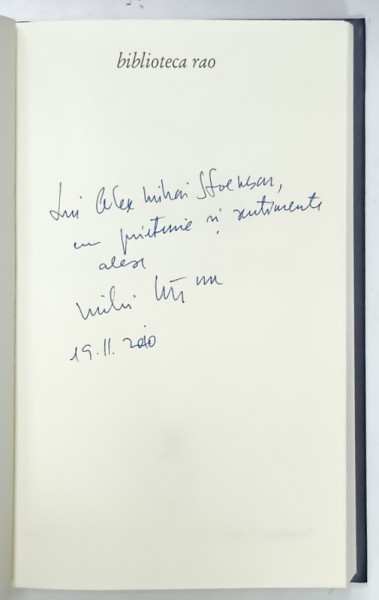 biblioteca rao
Lui Alex Mihai Stoenescu,
cu prietenie și sentimente
alese
19.II.2010